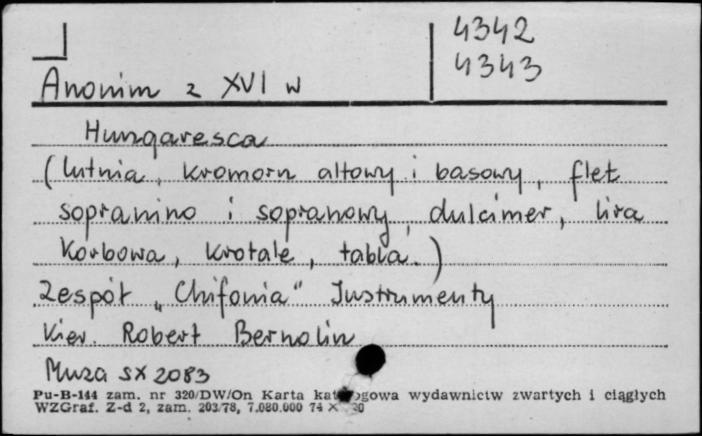 4342
4343
Anonim z XVI w
Hungaresca
(lutnia, kromorn altowy i basowy, flet
sopranino i sopranowy, dulcimer, lira
korbowa, krotale, tabla.)
Zespół "Chifonia" Instrumenty
Kier. Robert Bernolin
Muza SX 2083
Pu-B-144 zam. nr 320/DW/On Karta wydawnictw zwartych i ciągłych
WZGraf. Z-d 2, zam. 203/78, 7.080.000 74 X